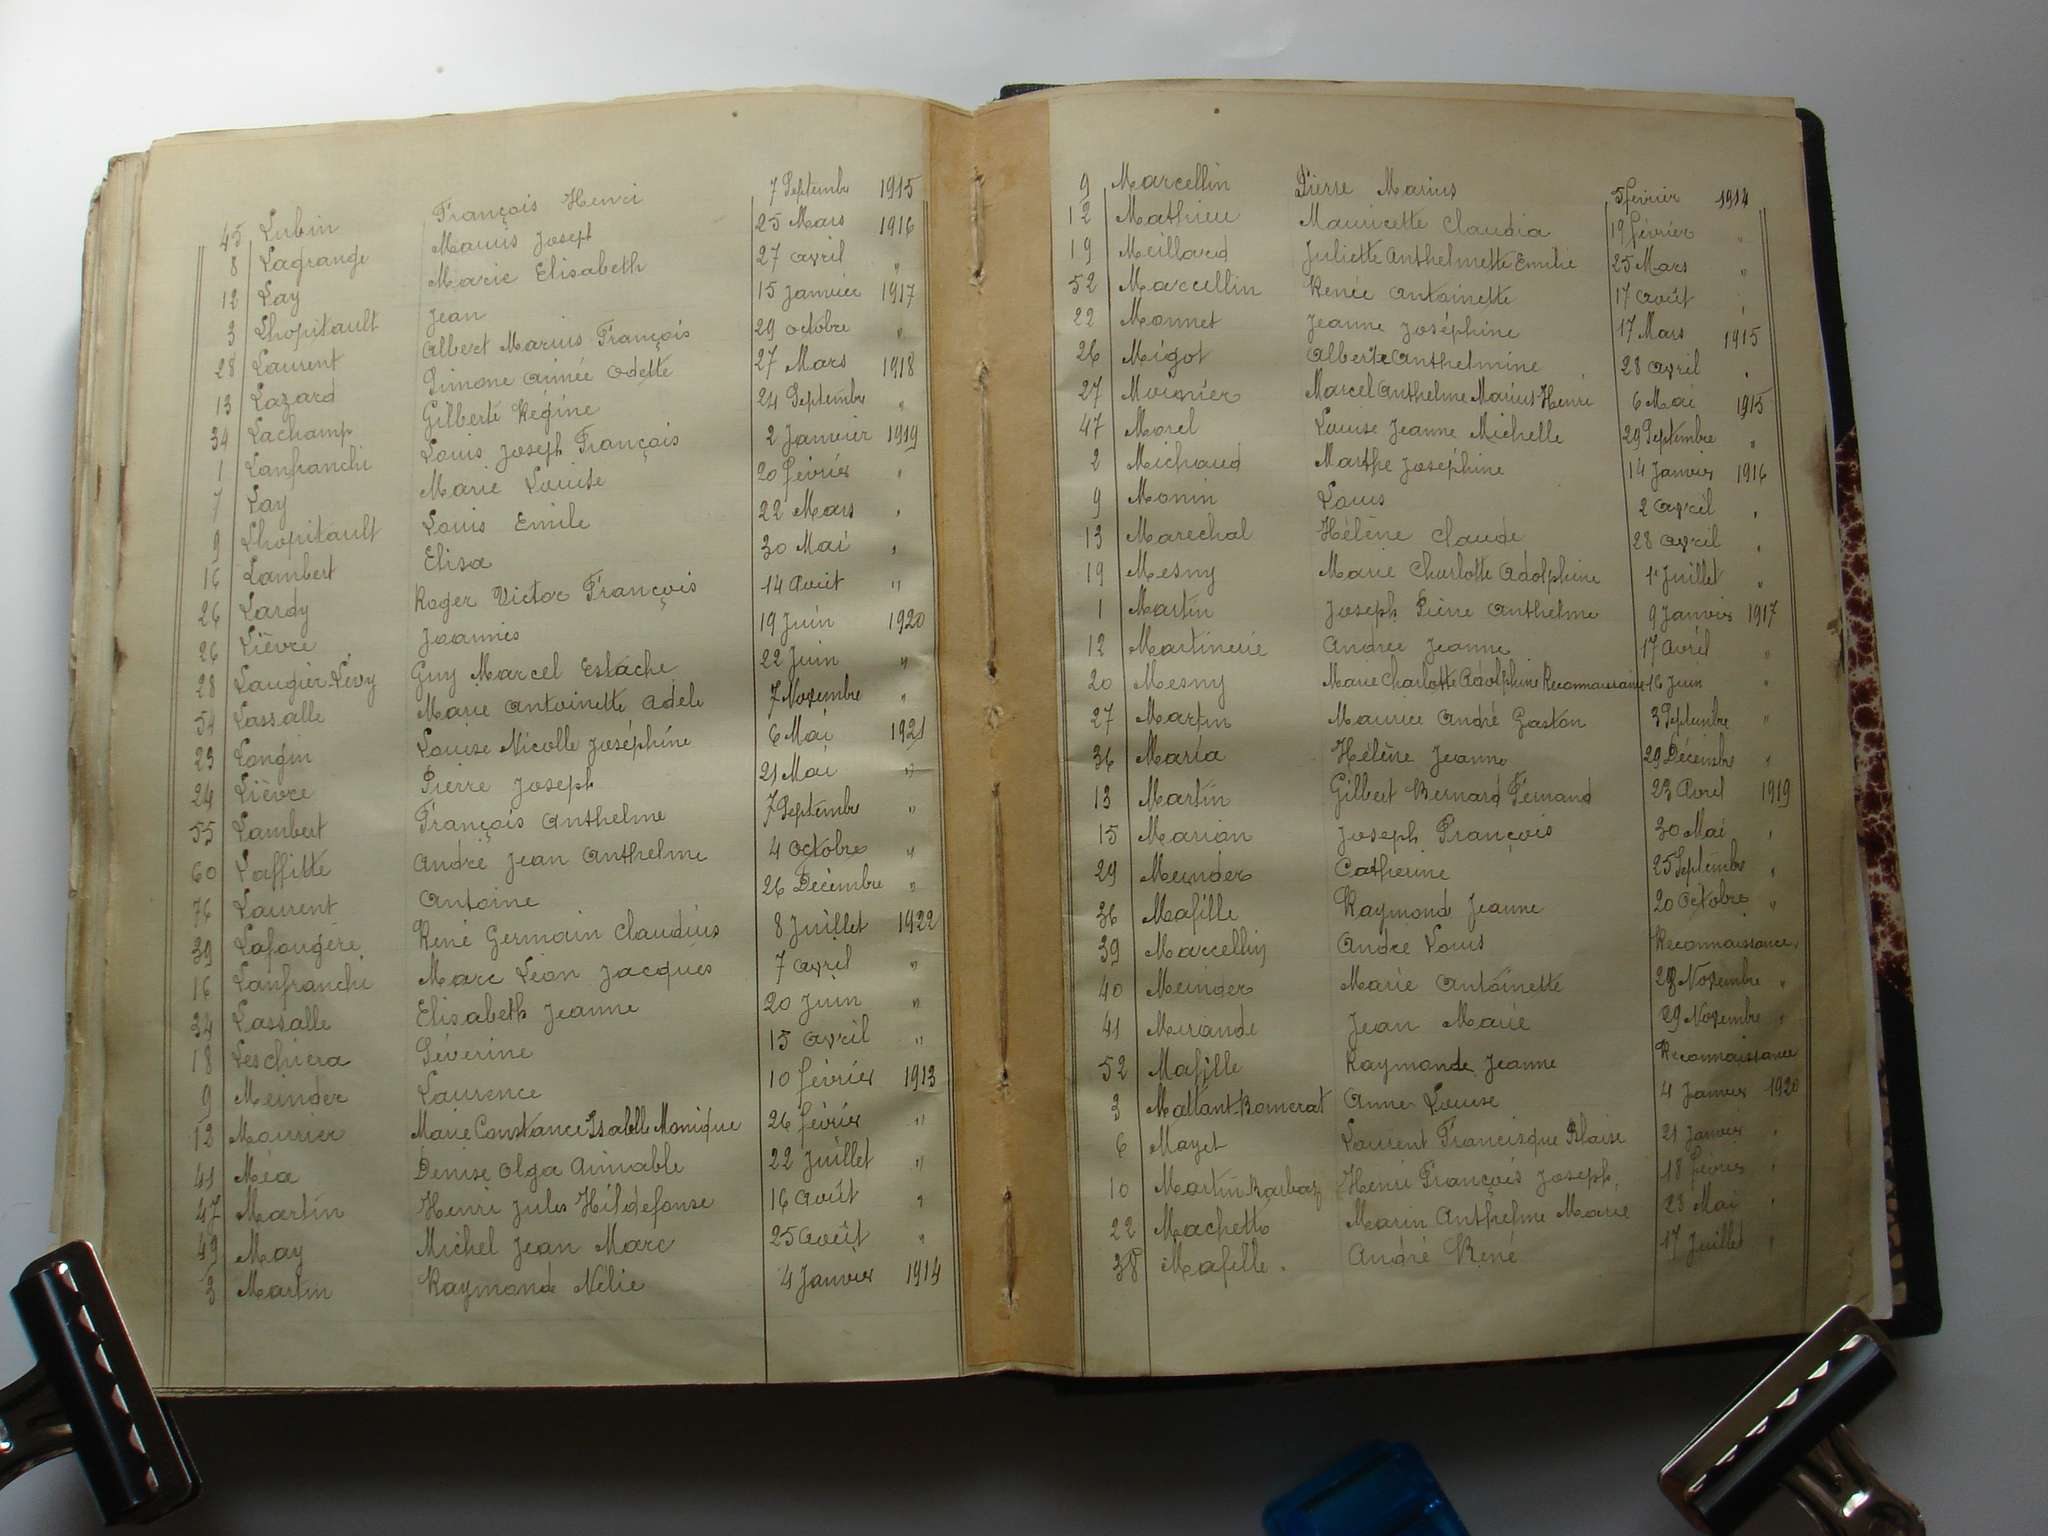 45 Lubin François Henri 7 Septembre 1915
8 Lagrange Marius Joseph 25 Mars 1916
12 Lay Marie Elisabeth 27 avril "
3 Lhopitault Jean 15 Janvier 1917
28 Laurent Albert Marius François 29 octobre "
13 Lazard Simone Aimée Odette 27 Mars 1918
34 Lachamp Gilberte Régine 24 Septembre "
1 Lanfranchi Louis Joseph François 2 Janvier 1919
7 Lay Marie Louise 20 février "
9 Lhopitault Louis Emile 22 Mars "
16 Lambert Elisa 30 Mai "
26 Lardy Roger Victor François 14 Août "
26 Lièvre Joannès 19 Juin 1920
28 Laugier-Lévy Guy Marcel Estache 22 Juin "
54 Lassalle Marie Antoinette Adele 7 Novembre "
23 Longin Louise Nicolle Joséphine 6 Mai 1921
24 Lièvre Pierre Joseph 21 Mai "
55 Lambert François Anthelme 7 Septembre "
60 Laffitte André Jean Anthelme 4 Octobre "
76 Laurent Antoine 26 Décembre "
39 Lafougère René Germain Claudius 8 Juillet 1922
16 Lanfranchi Marc Léon Jacques 7 avril "
34 Lassalle Elisabeth Jeanne 20 Juin "
18 Leschiera Séverine 15 avril "
9 Meinder Laurence 10 février 1913
12 Mourier Marie Constance Isabelle Monique 26 février "
41 Méa Denise Olga Aimable 22 Juillet "
47 Martin Henri Jules Hildefonse 16 Août "
49 May Michel Jean Marc 25 Août "
3 Martin Raymonde Nélie 4 Janvier 1914
9 Marcellin Pierre Marius 5 février 1914
12 Mathieu Mauricette Claudia 19 février "
19 Meillard Juliette Anthelmette Emilie 25 Mars "
52 Marcellin Renée Antoinette 17 Août "
22 Monnet Jeanne Joséphine 17 Mars 1915
26 Migot Alberte Anthelmine 28 avril "
27 Moirier Marcel Anthelme Marius Henri 6 Mai 1915
47 Morel Louise Jeanne Michelle 29 Septembre "
2 Michaud Marthe Joséphine 14 Janvier 1916
9 Monin Louis 2 avril "
13 Marechal Hélène Claude 28 avril "
19 Mesny Marie Charlotte Adolphine 1er Juillet "
1 Martin Joseph Pierre Anthelme 9 Janvier 1917
12 Martinerie Andrée Jeanne 17 Avril "
20 Mesny Marie Charlotte Adolphine Reconnaissance 16 Juin "
27 Martin Maurice André Gaston 3 Septembre "
36 Maria Hélène Jeanne 29 Décembre "
13 Martin Gilbert Bernard Fernand 23 Avril 1919
15 Marion Joseph François 30 Mai "
29 Meinder Catherine 25 Septembre "
36 Mafille Raymonde Jeanne 20 Octobre "
39 Marcellin André Louis Reconnaissance "
40 Meinder Marie Antoinette 28 Novembre "
41 Meriande Jean Marie 29 Novembre "
52 Mafille Raymonde Jeanne Reconnaissance
3 Mallant-Bomerat Anne Louise 4 Janvier 1920
6 Mayet Laurent Francisque Blaise 21 Janvier "
10 Martin-Barbaz Henri François Joseph 18 février "
22 Machetto Marin Anthelme Marie 23 Mai "
38 Mafille. André René 17 Juillet "